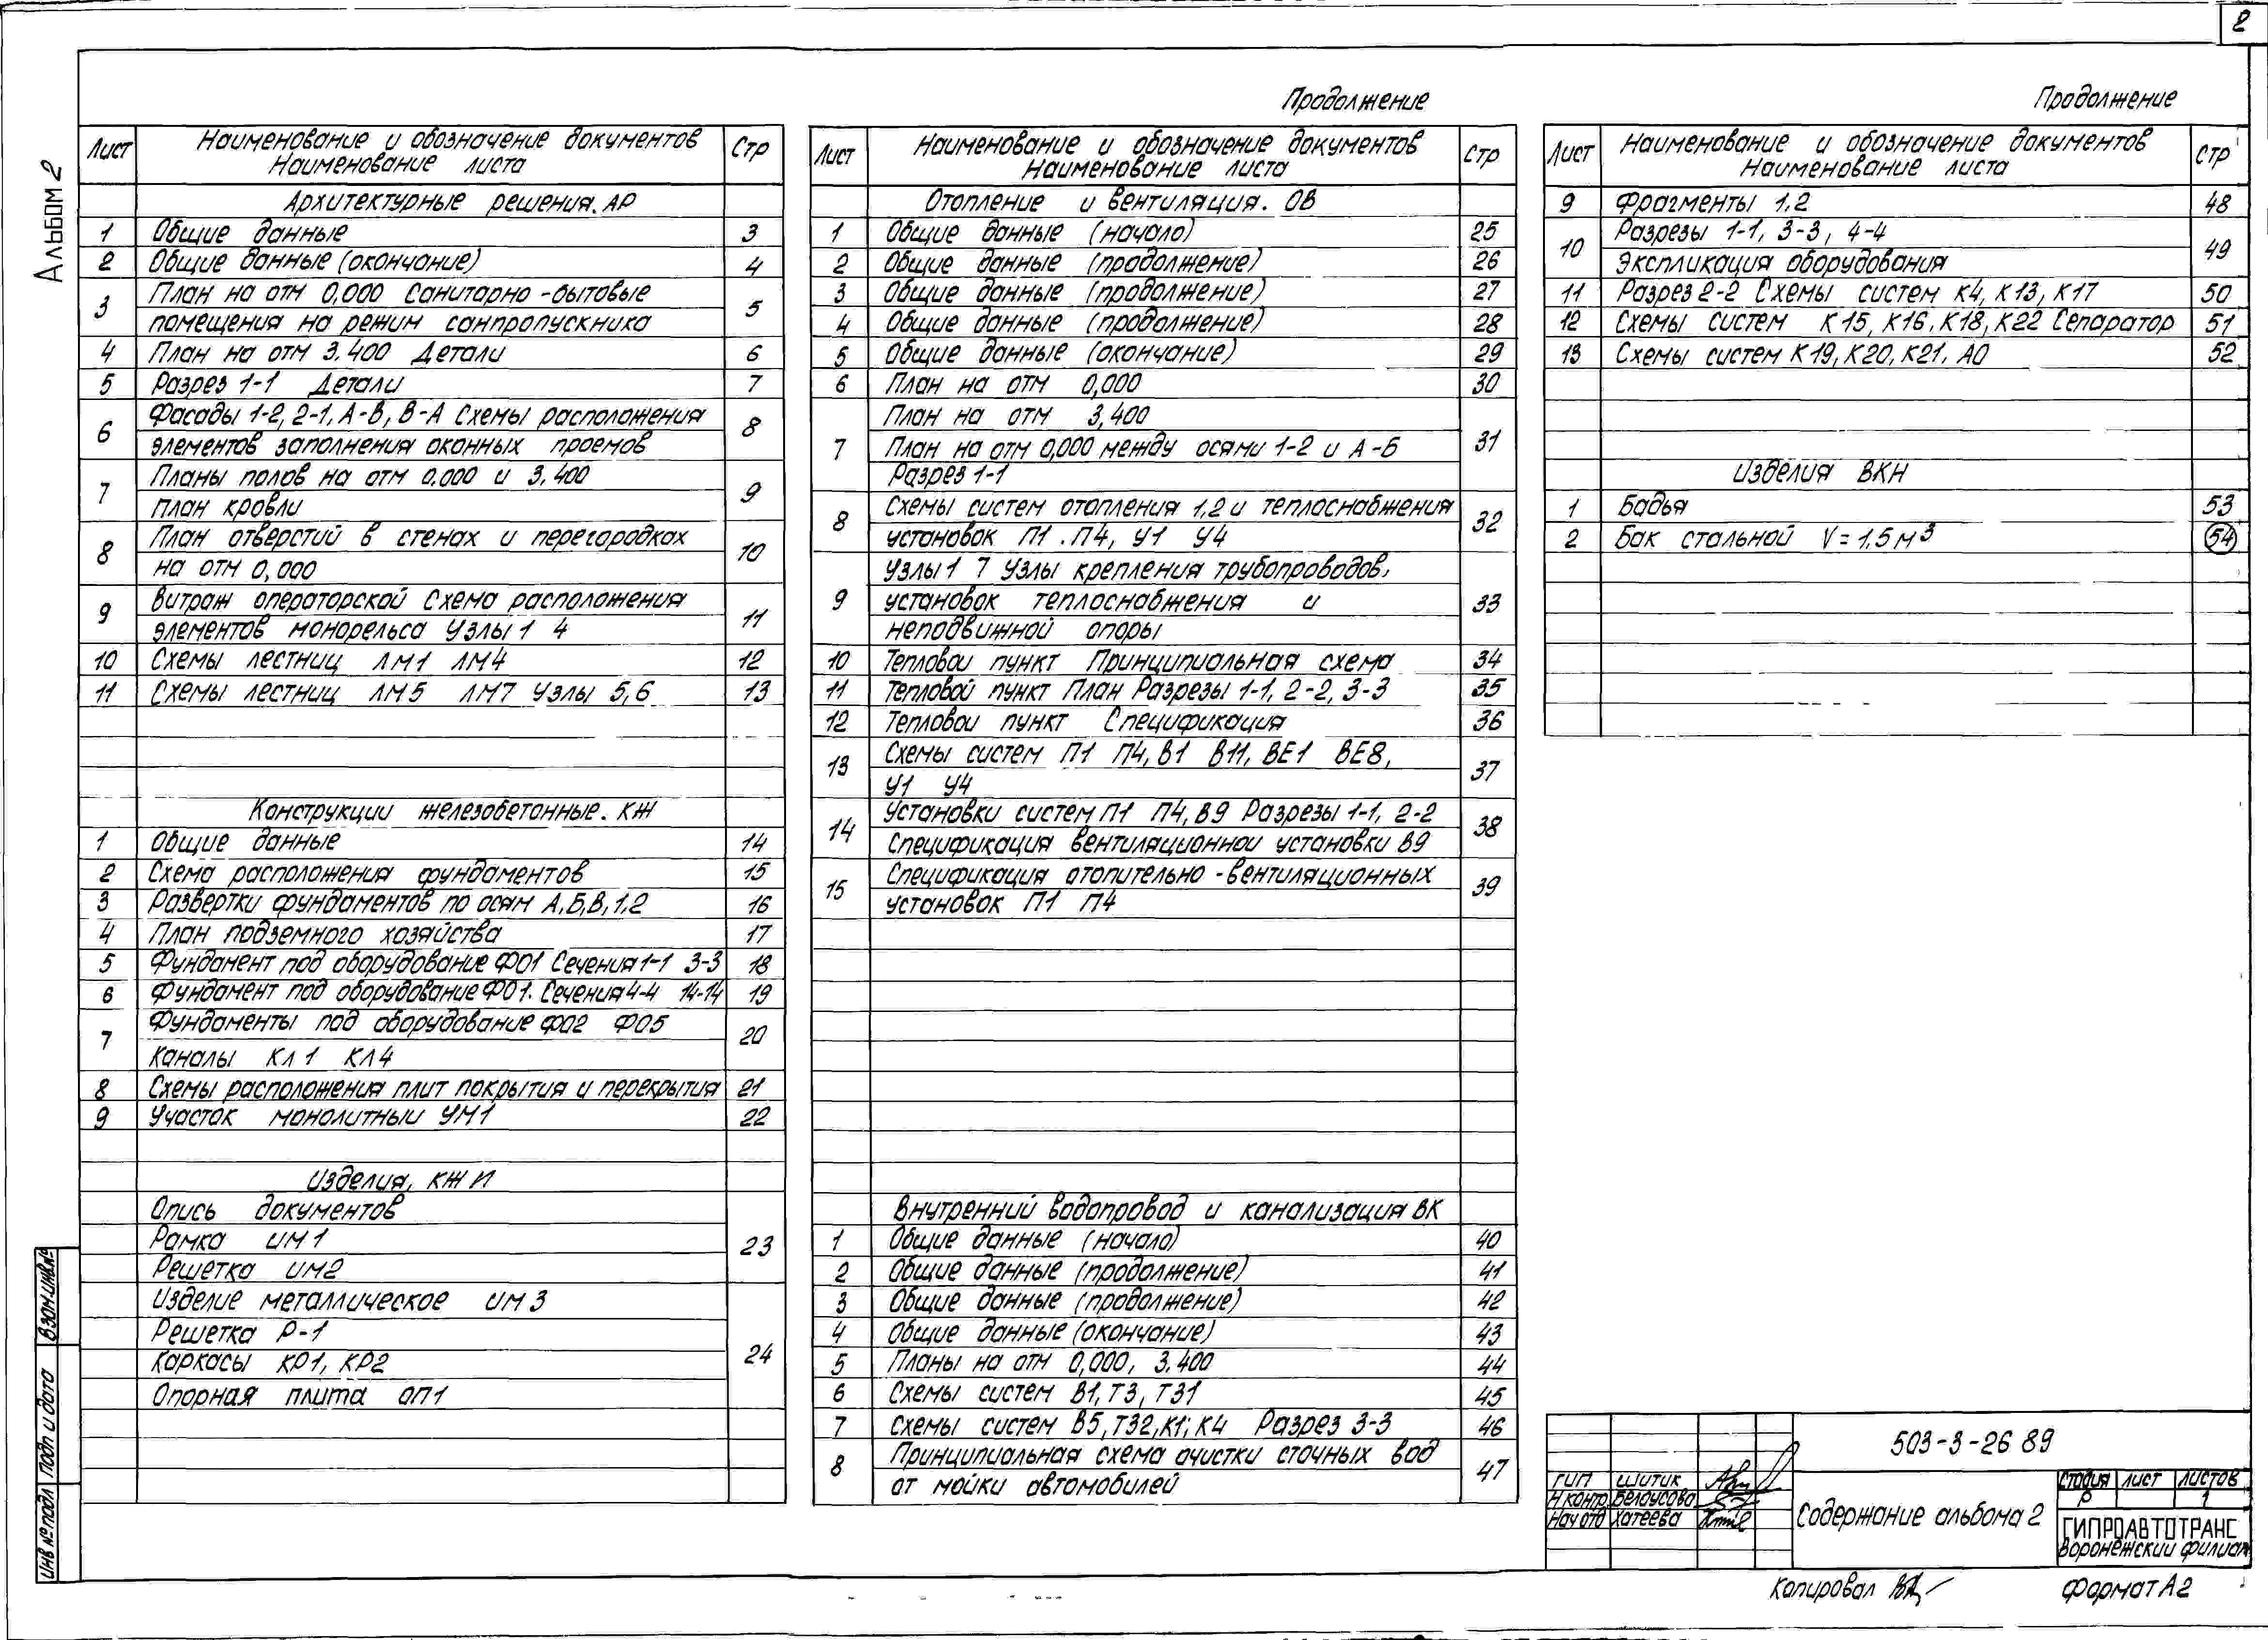 2
Альбом 2
Лист Наименование и обозначение документов Наименование листа Стр
Архитектурные решения. АР
1 Общие данные 3
2 Общие данные (окончание) 4
3 План на отм 0,000 Санитарно-бытовые 5
помещения на режим санпропускника
4 План на отм 3.400 Детали 6
5 Разрез 1-1 Детали 7
6 Фасады 1-2, 2-1, А-В, В-А Схемы расположения 8
элементов заполнения оконных проемов
7 Планы полов на отм 0.000 и 3.400 9
план кровли
8 План отверстий в стенах и перегородках 10
на отм 0,000
9 Витраж операторской Схема расположения 11
элементов монорельса Узлы 1 4
10 Схемы лестниц ЛМ1 ЛМ4 12
11 Схемы лестниц ЛМ5 ЛМ7 Узлы 5,6 13
Конструкции железобетонные. КЖ
1 Общие данные 14
2 Схема расположения фундаментов 15
3 Развертки фундаментов по осям А,Б,В,1,2 16
4 План подземного хозяйства 17
5 Фундамент под оборудование ФО1 Сечения 1-1 3-3 18
6 Фундамент под оборудование ФО1. Сечения 4-4 14-14 19
7 Фундаменты под оборудование ФО2 ФО5 20
Каналы КЛ1 КЛ4
8 Схемы расположения плит покрытия и перекрытия 21
9 Участок монолитный УМ1 22
Изделия, КЖИ
Опись документов
Рамка ИМ1 23
Решетка ИМ2
Изделие металлическое ИМ3
Решетка Р-1
Каркасы КР1, КР2 24
Опорная плита ОП1
Продолжение
Лист Наименование и обозначение документов Наименование листа Стр
Отопление и вентиляция. ОВ
1 Общие данные (начало) 25
2 Общие данные (продолжение) 26
3 Общие данные (продолжение) 27
4 Общие данные (продолжение) 28
5 Общие данные (окончание) 29
6 План на отм 0,000 30
План на отм 3,400
7 План на отм 0,000 между осями 1-2 и А-Б 31
Разрез 1-1
8 Схемы систем отопления 1,2 и теплоснабжения 32
установок П1.П4, У1 У4
Узлы 1 7 Узлы крепления трубопроводов,
9 установок теплоснабжения и 33
неподвижной опоры
10 Тепловой пункт Принципиальная схема 34
11 Тепловой пункт План Разрезы 1-1, 2-2, 3-3 35
12 Тепловой пункт Спецификация 36
13 Схемы систем П1 П4, В1 В11, ВЕ1 ВЕ8, 37
У1 У4
14 Установки систем П1 П4, В9 Разрезы 1-1, 2-2 38
Спецификация вентиляционной установки В9
15 Спецификация отопительно-вентиляционных 39
установок П1 П4
Внутренний водопровод и канализация ВК
1 Общие данные (начало) 40
2 Общие данные (продолжение) 41
3 Общие данные (продолжение) 42
4 Общие данные (окончание) 43
5 Планы на отм 0,000, 3.400 44
6 Схемы систем В1, Т3, Т31 45
7 Схемы систем В5, Т32, К1; К4 Разрез 3-3 46
8 Принципиальная схема очистки сточных вод 47
от мойки автомобилей
Продолжение
Лист Наименование и обозначение документов Наименование листа Стр
9 Фрагменты 1,2 48
10 Разрезы 1-1, 3-3, 4-4 49
Экспликация оборудования
11 Разрез 2-2 Схемы систем К4, К13, К17 50
12 Схемы систем К15, К16, К18, К22 Сепаратор 51
13 Схемы систем К19, К20, К21, АО 52
Изделия ВКН
1 Бадья 53
2 Бак стальной V = 1,5 м³ 54
503-3-26 89
ГИП Шитик
Н контр Белоусова
Нач отд Хатеева
Содержание альбома 2
Стадия Лист Листов
Р 1
ГИПРОАВТОТРАНС
Воронежский филиал
Копировал
Формат А2
Взам инв №
Подп и дата
Инв № подл